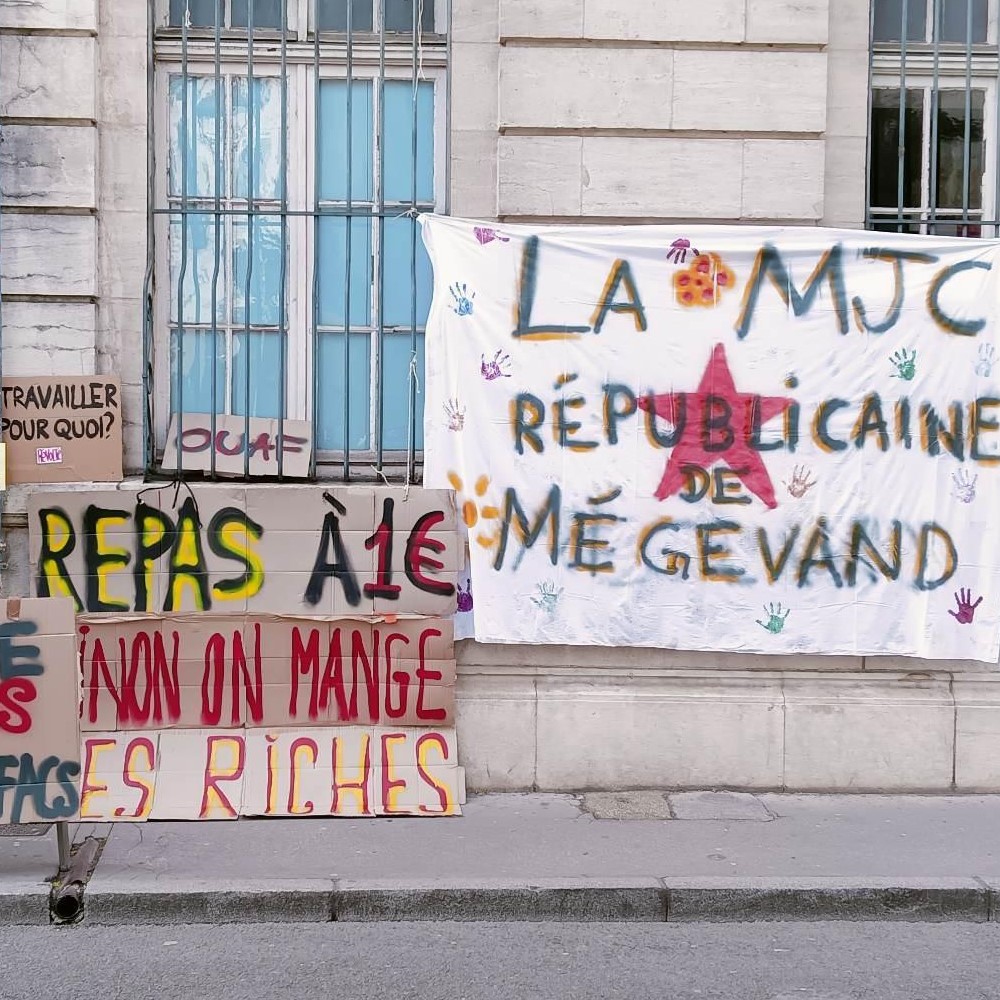 TRAVAILLER
POUR QUOI?
OUAF
REPAS À 1€
INON ON MANGE
ES RICHES
E
S
FACS
LA MJC
RÉPUBLICAINE
DE
MÉGEVAND